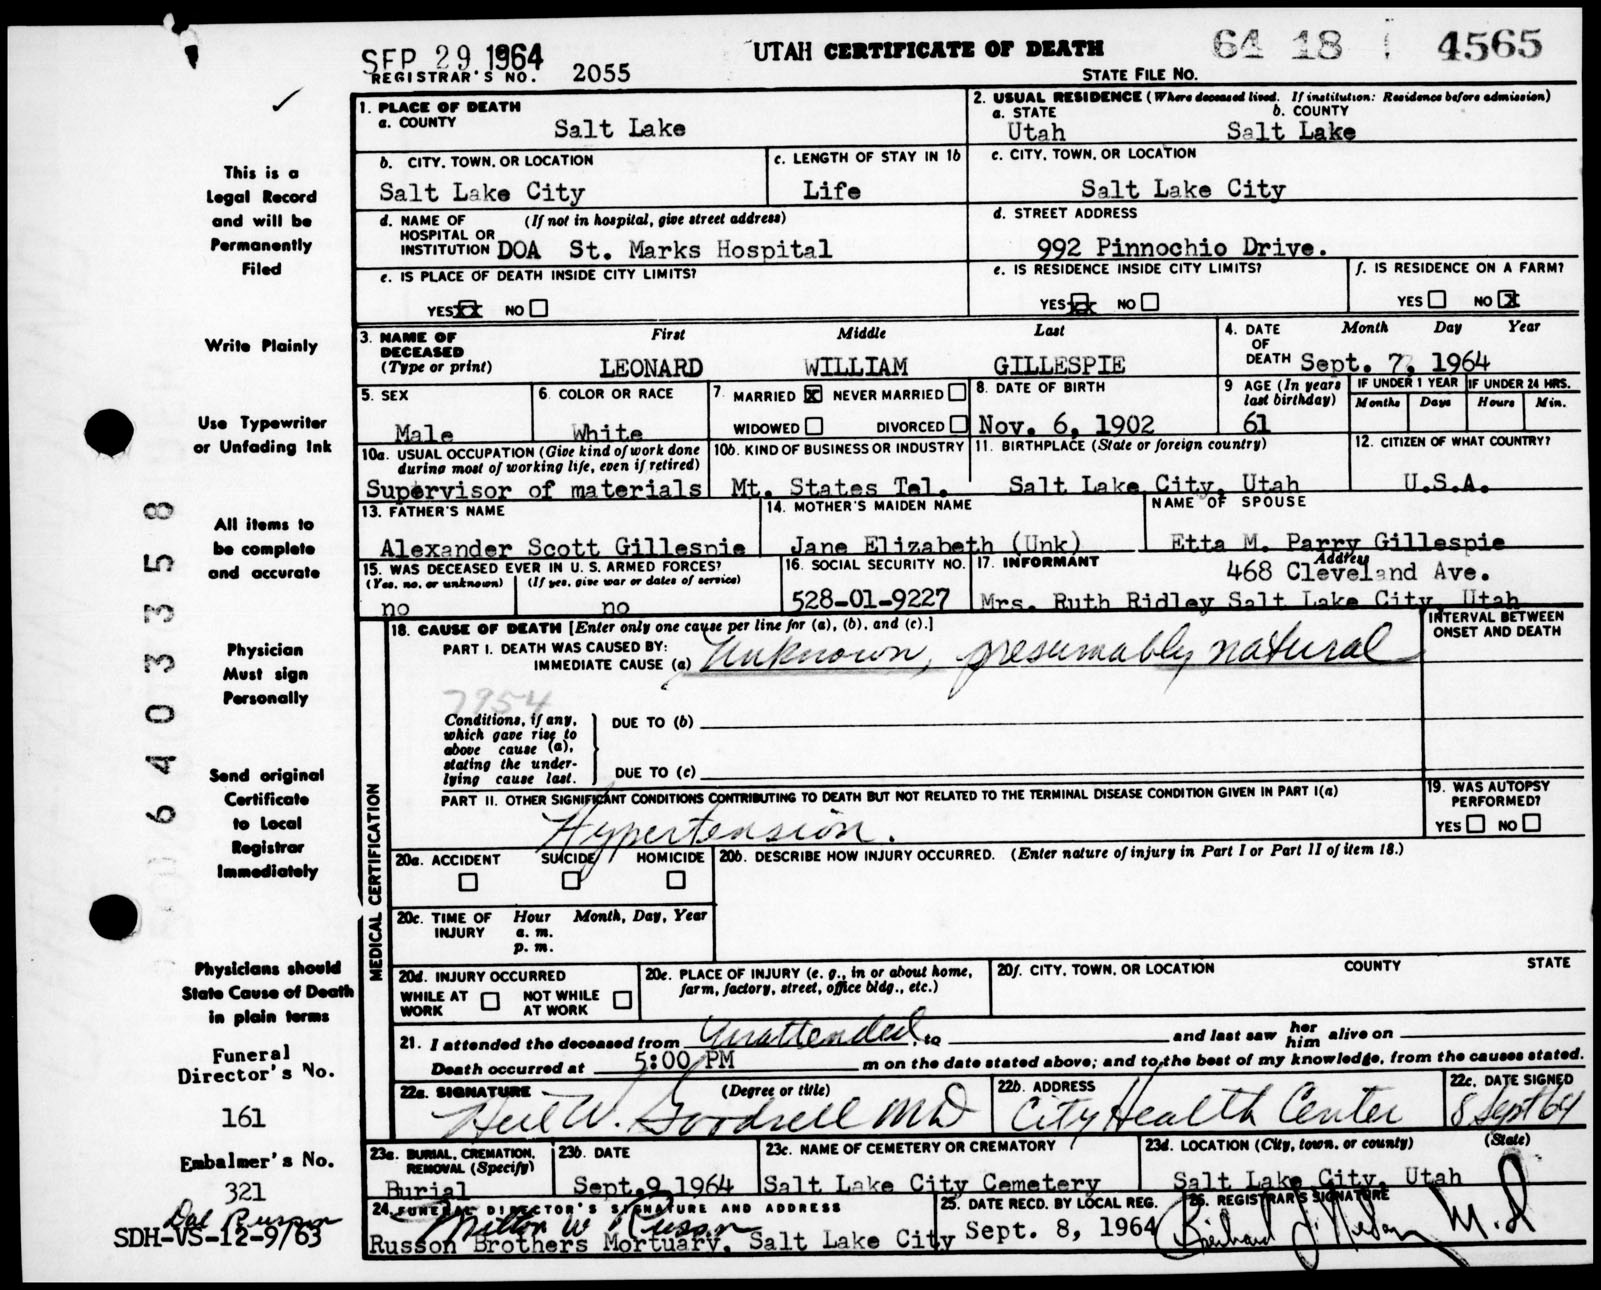 SEP 29 1964
UTAH CERTIFICATE OF DEATH
64 18 4565
REGISTRAR'S NO. 2055
STATE FILE NO.
This is a
Legal Record
and will be
Permanently
Filed
Write Plainly
Use Typewriter
or Unfading Ink
All items to
be complete
and accurate
Physician
Must sign
Personally
Send original
Certificate
to Local
Registrar
Immediately
Physicians should
State Cause of Death
in plain terms
Funeral
Director's No.
161
Embalmer's No.
321
SDH-VS-12-9/63
6403358
1. PLACE OF DEATH
a. COUNTY
Salt Lake
2. USUAL RESIDENCE (Where deceased lived. If institution: Residence before admission)
a. STATE b. COUNTY
Utah Salt Lake
b. CITY, TOWN, OR LOCATION
Salt Lake City
c. LENGTH OF STAY IN 1b
Life
c. CITY, TOWN, OR LOCATION
Salt Lake City
d. NAME OF (If not in hospital, give street address)
HOSPITAL OR
INSTITUTION DOA St. Marks Hospital
d. STREET ADDRESS
992 Pinnochio Drive.
e. IS PLACE OF DEATH INSIDE CITY LIMITS?
YES XX NO
e. IS RESIDENCE INSIDE CITY LIMITS?
YES XX NO
f. IS RESIDENCE ON A FARM?
YES NO X
3. NAME OF
DECEASED
(Type or print)
First Middle Last
LEONARD WILLIAM GILLESPIE
4. DATE Month Day Year
OF
DEATH Sept. 7, 1964
5. SEX
Male
6. COLOR OR RACE
White
7. MARRIED X NEVER MARRIED
WIDOWED DIVORCED
8. DATE OF BIRTH
Nov. 6, 1902
9 AGE (In years
last birthday)
61
IF UNDER 1 YEAR IF UNDER 24 HRS.
Months Days Hours Min.
10a. USUAL OCCUPATION (Give kind of work done
during most of working life, even if retired)
Supervisor of materials
10b. KIND OF BUSINESS OR INDUSTRY
Mt. States Tel.
11. BIRTHPLACE (State or foreign country)
Salt Lake City, Utah
12. CITIZEN OF WHAT COUNTRY?
U.S.A.
13. FATHER'S NAME
Alexander Scott Gillespie
14. MOTHER'S MAIDEN NAME
Jane Elizabeth (Unk)
NAME OF SPOUSE
Etta M. Parry Gillespie
15. WAS DECEASED EVER IN U. S. ARMED FORCES?
(Yes, no, or unknown) (If yes, give war or dates of service)
no no
16. SOCIAL SECURITY NO.
528-01-9227
17. INFORMANT Address
468 Cleveland Ave.
Mrs. Ruth Ridley Salt Lake City, Utah
MEDICAL CERTIFICATION
18. CAUSE OF DEATH [Enter only one cause per line for (a), (b), and (c).]
INTERVAL BETWEEN
ONSET AND DEATH
PART I. DEATH WAS CAUSED BY:
IMMEDIATE CAUSE (a) Unknown, presumably natural
7954
Conditions, if any,
which gave rise to
above cause (a),
stating the under-
lying cause last.
DUE TO (b)
DUE TO (c)
PART II. OTHER SIGNIFICANT CONDITIONS CONTRIBUTING TO DEATH BUT NOT RELATED TO THE TERMINAL DISEASE CONDITION GIVEN IN PART I(a)
Hypertension.
19. WAS AUTOPSY
PERFORMED?
YES NO
20a. ACCIDENT SUICIDE HOMICIDE
20b. DESCRIBE HOW INJURY OCCURRED. (Enter nature of injury in Part I or Part II of item 18.)
20c. TIME OF Hour Month, Day, Year
INJURY a. m.
p. m.
20d. INJURY OCCURRED
WHILE AT NOT WHILE
WORK AT WORK
20e. PLACE OF INJURY (e. g., in or about home,
farm, factory, street, office bldg., etc.)
20f. CITY, TOWN, OR LOCATION COUNTY STATE
21. I attended the deceased from Unattended, to and last saw her him alive on
Death occurred at 5:00 PM m on the date stated above; and to the best of my knowledge, from the causes stated.
22a. SIGNATURE (Degree or title)
MD
22b. ADDRESS
City Health Center
22c. DATE SIGNED
8 Sept 64
23a. BURIAL, CREMATION,
REMOVAL (Specify)
Burial
23b. DATE
Sept. 9 1964
23c. NAME OF CEMETERY OR CREMATORY
Salt Lake City Cemetery
23d. LOCATION (City, town, or county) (State)
Salt Lake City, Utah
24. FUNERAL DIRECTOR'S SIGNATURE AND ADDRESS
Milton W Russon
Russon Brothers Mortuary, Salt Lake City
25. DATE RECD. BY LOCAL REG.
Sept. 8, 1964
26. REGISTRAR'S SIGNATURE
M.D